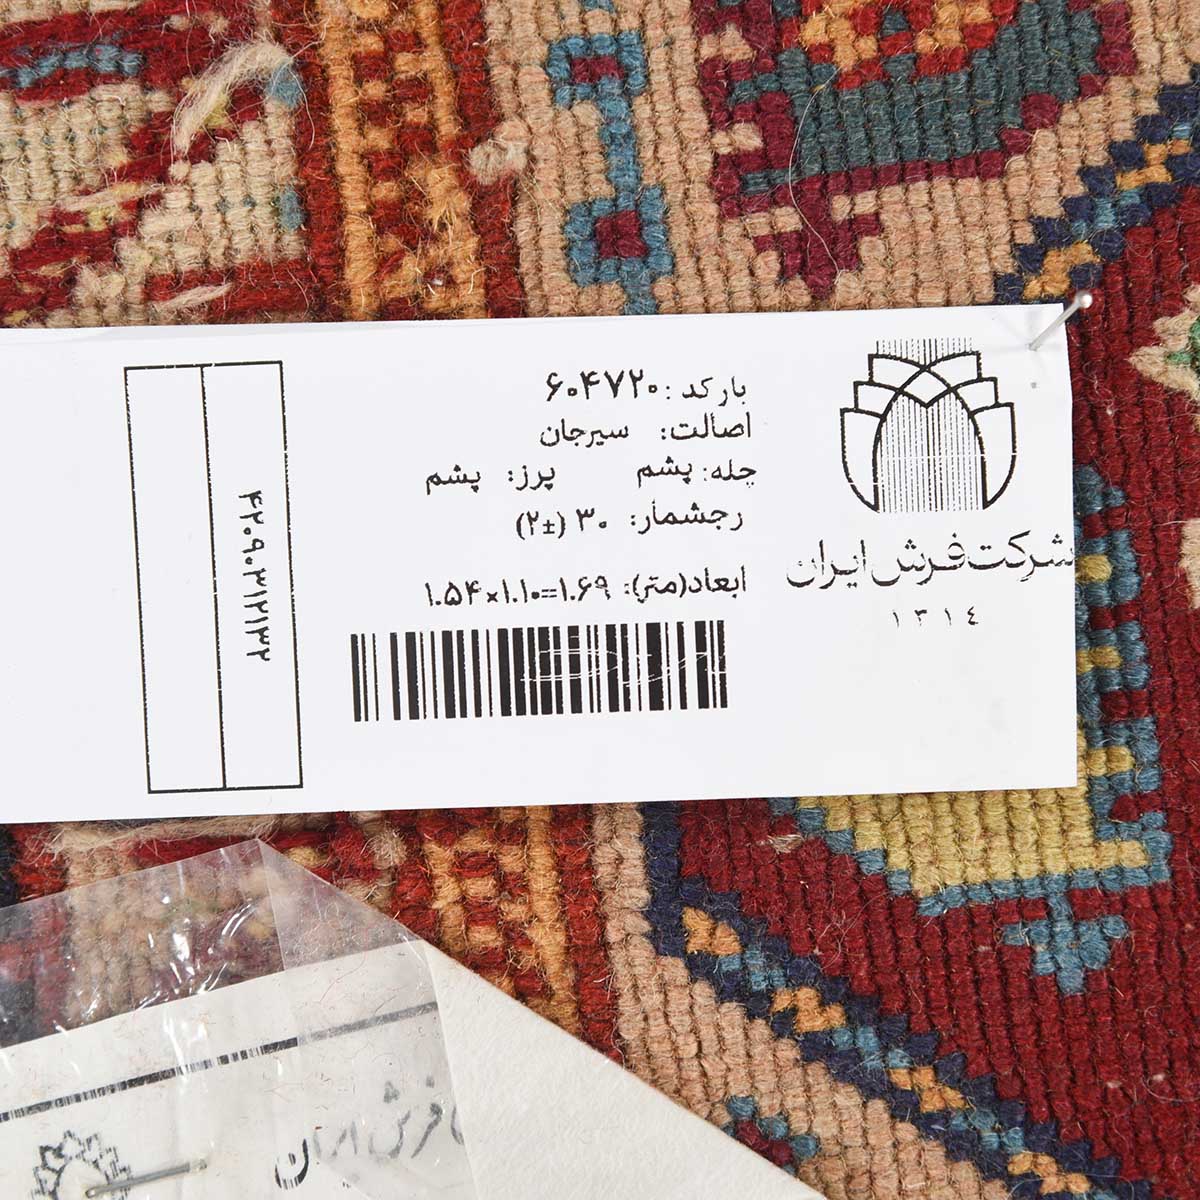 بارکد: ۶۰۴۷۲۰
اصالت: سیرجان
چله: پشم پرز: پشم
رجشمار: ۳۰ (±۲)
ابعاد(متر): ۱.۵۴×۱.۱۰=۱.۶۹
شرکت فرش ایران
۱۳۱۴
۴۲۰۹۰۳۱۲۱۳۲
فرش ایران